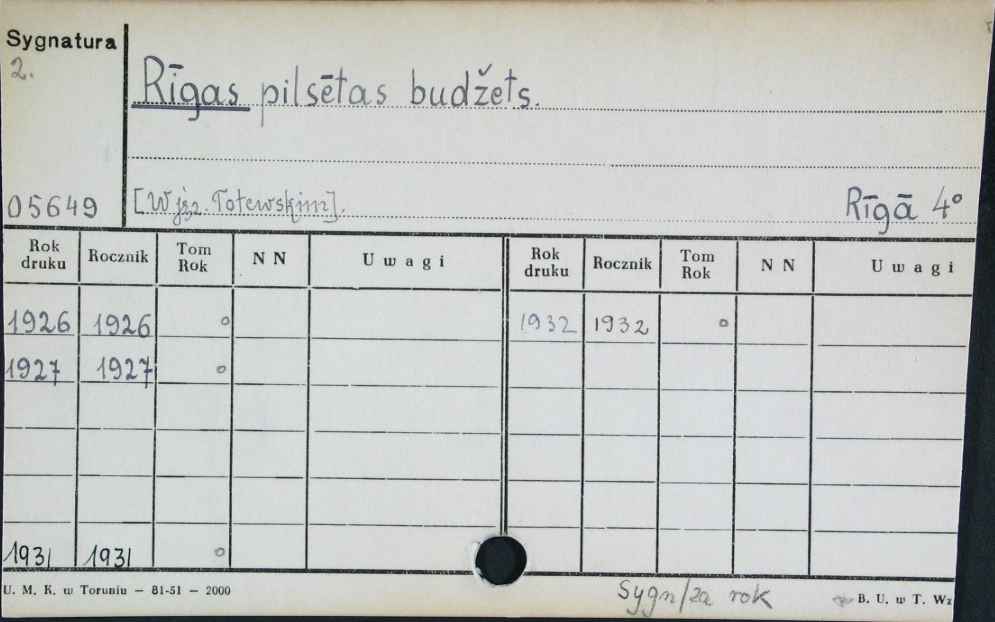 Sygnatura
2.
Rīgas pilsētas budžets.
05649
[W jęz. Łotewskim].
Rīgā 4°
Rok druku Rocznik Tom Rok N N Uwagi Rok druku Rocznik Tom Rok N N Uwagi
1926 1926 o 1932 1932 o
1927 1927 o
1931 1931 o
U. M. K. w Toruniu — 81-51 — 2000
Sygn/za rok
B. U. w T. Wz